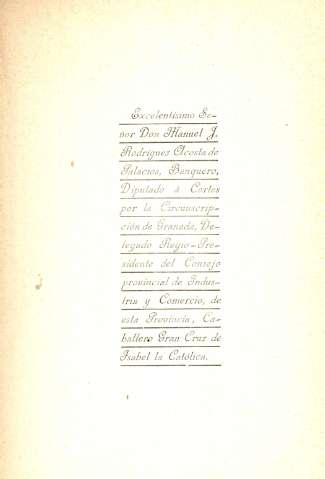 Excelentísimo Se-
ñor Don Manuel J.
Rodríguez Acosta de
Palacios, Banquero,
Diputado á Cortes
por la Circunscrip-
ción de Granada, De-
legado Regio-Pre-
sidente del Consejo
provincial de Indus-
tria y Comercio, de
esta Provincia, Ca-
ballero Gran Cruz de
Isabel la Católica.